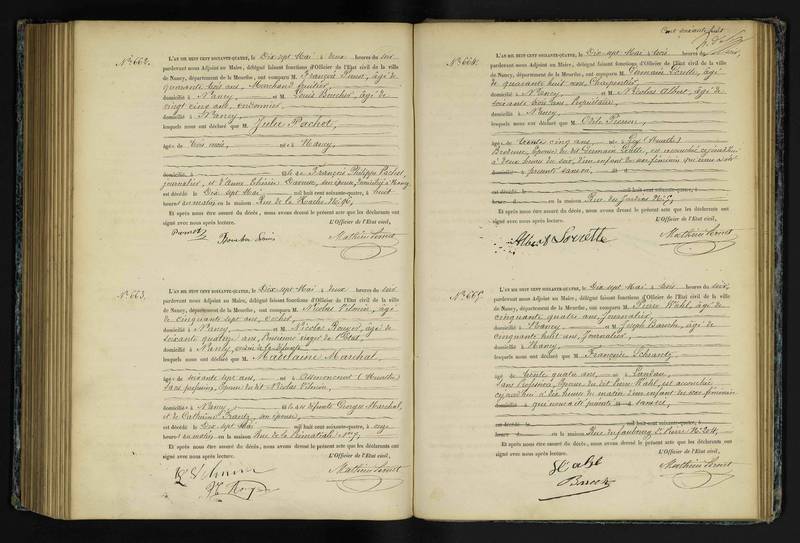 N.° 662.
L'AN MIL HUIT CENT SOIXANTE-QUATRE, le Dix sept Mai à deux heures du soir
pardevant nous Adjoint au Maire, délégué faisant fonctions d'Officier de l'Etat civil de la ville
de Nancy, département de la Meurthe, ont comparu M. François âgé de
quarante trois ans, Marchand fruitier
domicilié à Nancy et M. Louis Boucher, âgé de
vingt cinq ans, Cordonnier
domicilié à Nancy
lesquels nous ont déclaré que M. Julie Pachot,
âgé de trois mois, né à Nancy,
domicilié à fils de François Philippe Pachot,
journalier, et d'Anne son épouse, domiciliés à Nancy
est décédé le Dix sept Mai mil huit cent soixante-quatre, à huit
heures du matin en la maison Rue de la Hache N.° 96,
Et après nous être assuré du décès, nous avons dressé le présent acte que les déclarants ont
signé avec nous après lecture. L'Officier de l'Etat civil,
Boucher Louis
N.° 663.
L'AN MIL HUIT CENT SOIXANTE-QUATRE, le Dix sept Mai à deux heures du soir
pardevant nous Adjoint au Maire, délégué faisant fonctions d'Officier de l'Etat civil de la ville
de Nancy, département de la Meurthe, ont comparu M. Nicolas âgé
de cinquante sept ans, cocher,
domicilié à Nancy et M. Nicolas Rouyer, âgé de
soixante quatre ans, Pensionné viager de l'Etat,
domicilié à Nancy,
lesquels nous ont déclaré que M. Madelaine Marchal,
âgé de soixante sept ans, né à (Meurthe)
sans profession, Epouse du dit Nicolas
domicilié à Nancy, fils des défunts Georges Marchal,
et de Catherine son épouse,
est décédé le Dix sept Mai mil huit cent soixante-quatre, à onze
heures du matin en la maison Rue de la Primatiale N.° 7,
Et après nous être assuré du décès, nous avons dressé le présent acte que les déclarants ont
signé avec nous après lecture. L'Officier de l'Etat civil,
Cent soixante huit
N.° 664.
L'AN MIL HUIT CENT SOIXANTE-QUATRE, le Dix sept Mai à trois heures du soir,
pardevant nous Adjoint au Maire, délégué faisant fonctions d'Officier de l'Etat civil de la ville
de Nancy, département de la Meurthe, ont comparu M. Germain âgé
de quarante huit ans, Charpentier,
domicilié à Nancy et M. Nicolas Albert, âgé de
soixante trois ans, Propriétaire,
domicilié à Nancy,
lesquels nous ont déclaré que M. Odile
âgé de trente cinq ans, né à (Meurthe)
Brodeuse, Epouse du dit Germain est accouchée cejourd'hui
à deux heures du soir, d'un enfant du sexe féminin que nous a été
présenté sans vie,
est décédé le mil huit cent soixante-quatre, à
heures du en la maison Rue des Jardins N.° 7,
Et après nous être assuré du décès, nous avons dressé le présent acte que les déclarants ont
signé avec nous après lecture. L'Officier de l'Etat civil,
Albert
N.° 665.
L'AN MIL HUIT CENT SOIXANTE-QUATRE, le Dix sept Mai à trois heures du soir,
pardevant nous Adjoint au Maire, délégué faisant fonctions d'Officier de l'Etat civil de la ville
de Nancy, département de la Meurthe, ont comparu M. Pierre Wahl, âgé de
cinquante quatre ans, Journalier,
domicilié à Nancy et M. Joseph âgé de
cinquante huit ans, Journalier,
domicilié à Nancy
lesquels nous ont déclaré que M. Françoise Schwartz
âgé de trente quatre ans, né à Landau
sans Profession, Epouse du dit Pierre Wahl, est accouchée
cejourd'hui à dix heures du matin d'un enfant du sexe féminin
que nous a été présenté sans vie,
est décédé le mil huit cent soixante-quatre, à
heures du en la maison Rue du faubourg S.t Pierre N.° 204,
Et après nous être assuré du décès, nous avons dressé le présent acte que les déclarants ont
signé avec nous après lecture. L'Officier de l'Etat civil,
Wahl